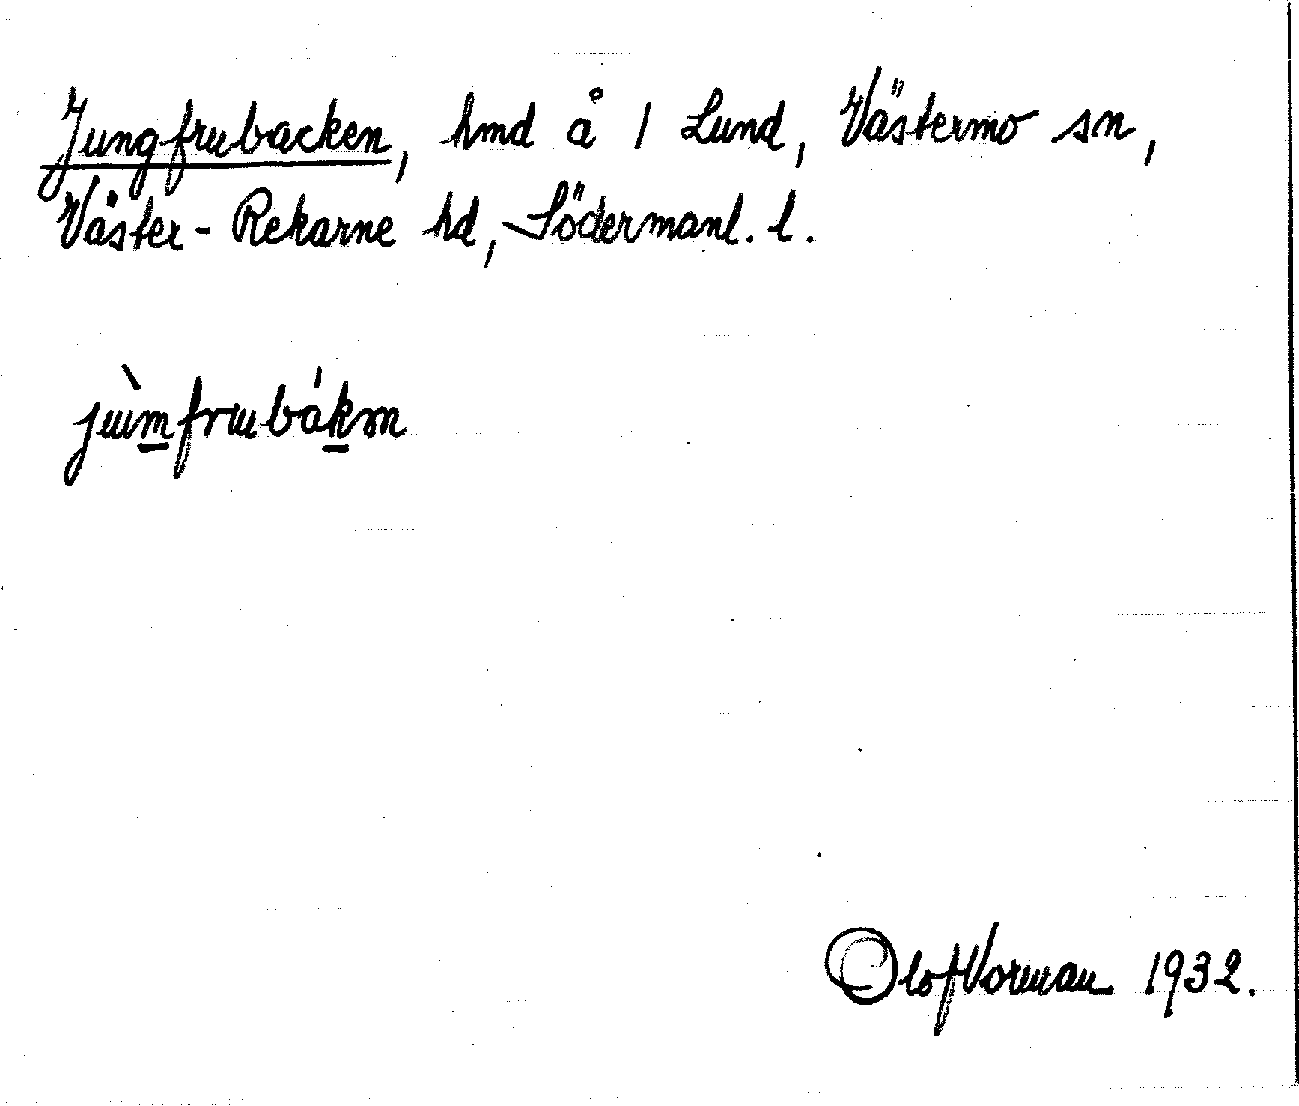 Jungfrubacken, hmd å 1 Lund, Västermo sn,
Väster-Rekarne hd, Södermanl. l.
jùm̲frubák̲ən
Olof Vorman 1932.